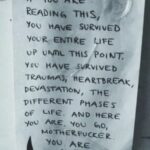 IF YOU ARE
READING THIS,
YOU HAVE SURVIVED
YOUR ENTIRE LIFE
UP UNTIL THIS POINT.
YOU HAVE SURVIVED
TRAUMAS, HEARTBREAK,
DEVASTATION, THE
DIFFERENT PHASES
OF LIFE. AND HERE
YOU ARE. YOU GO,
MOTHERFUCKER.
YOU ARE